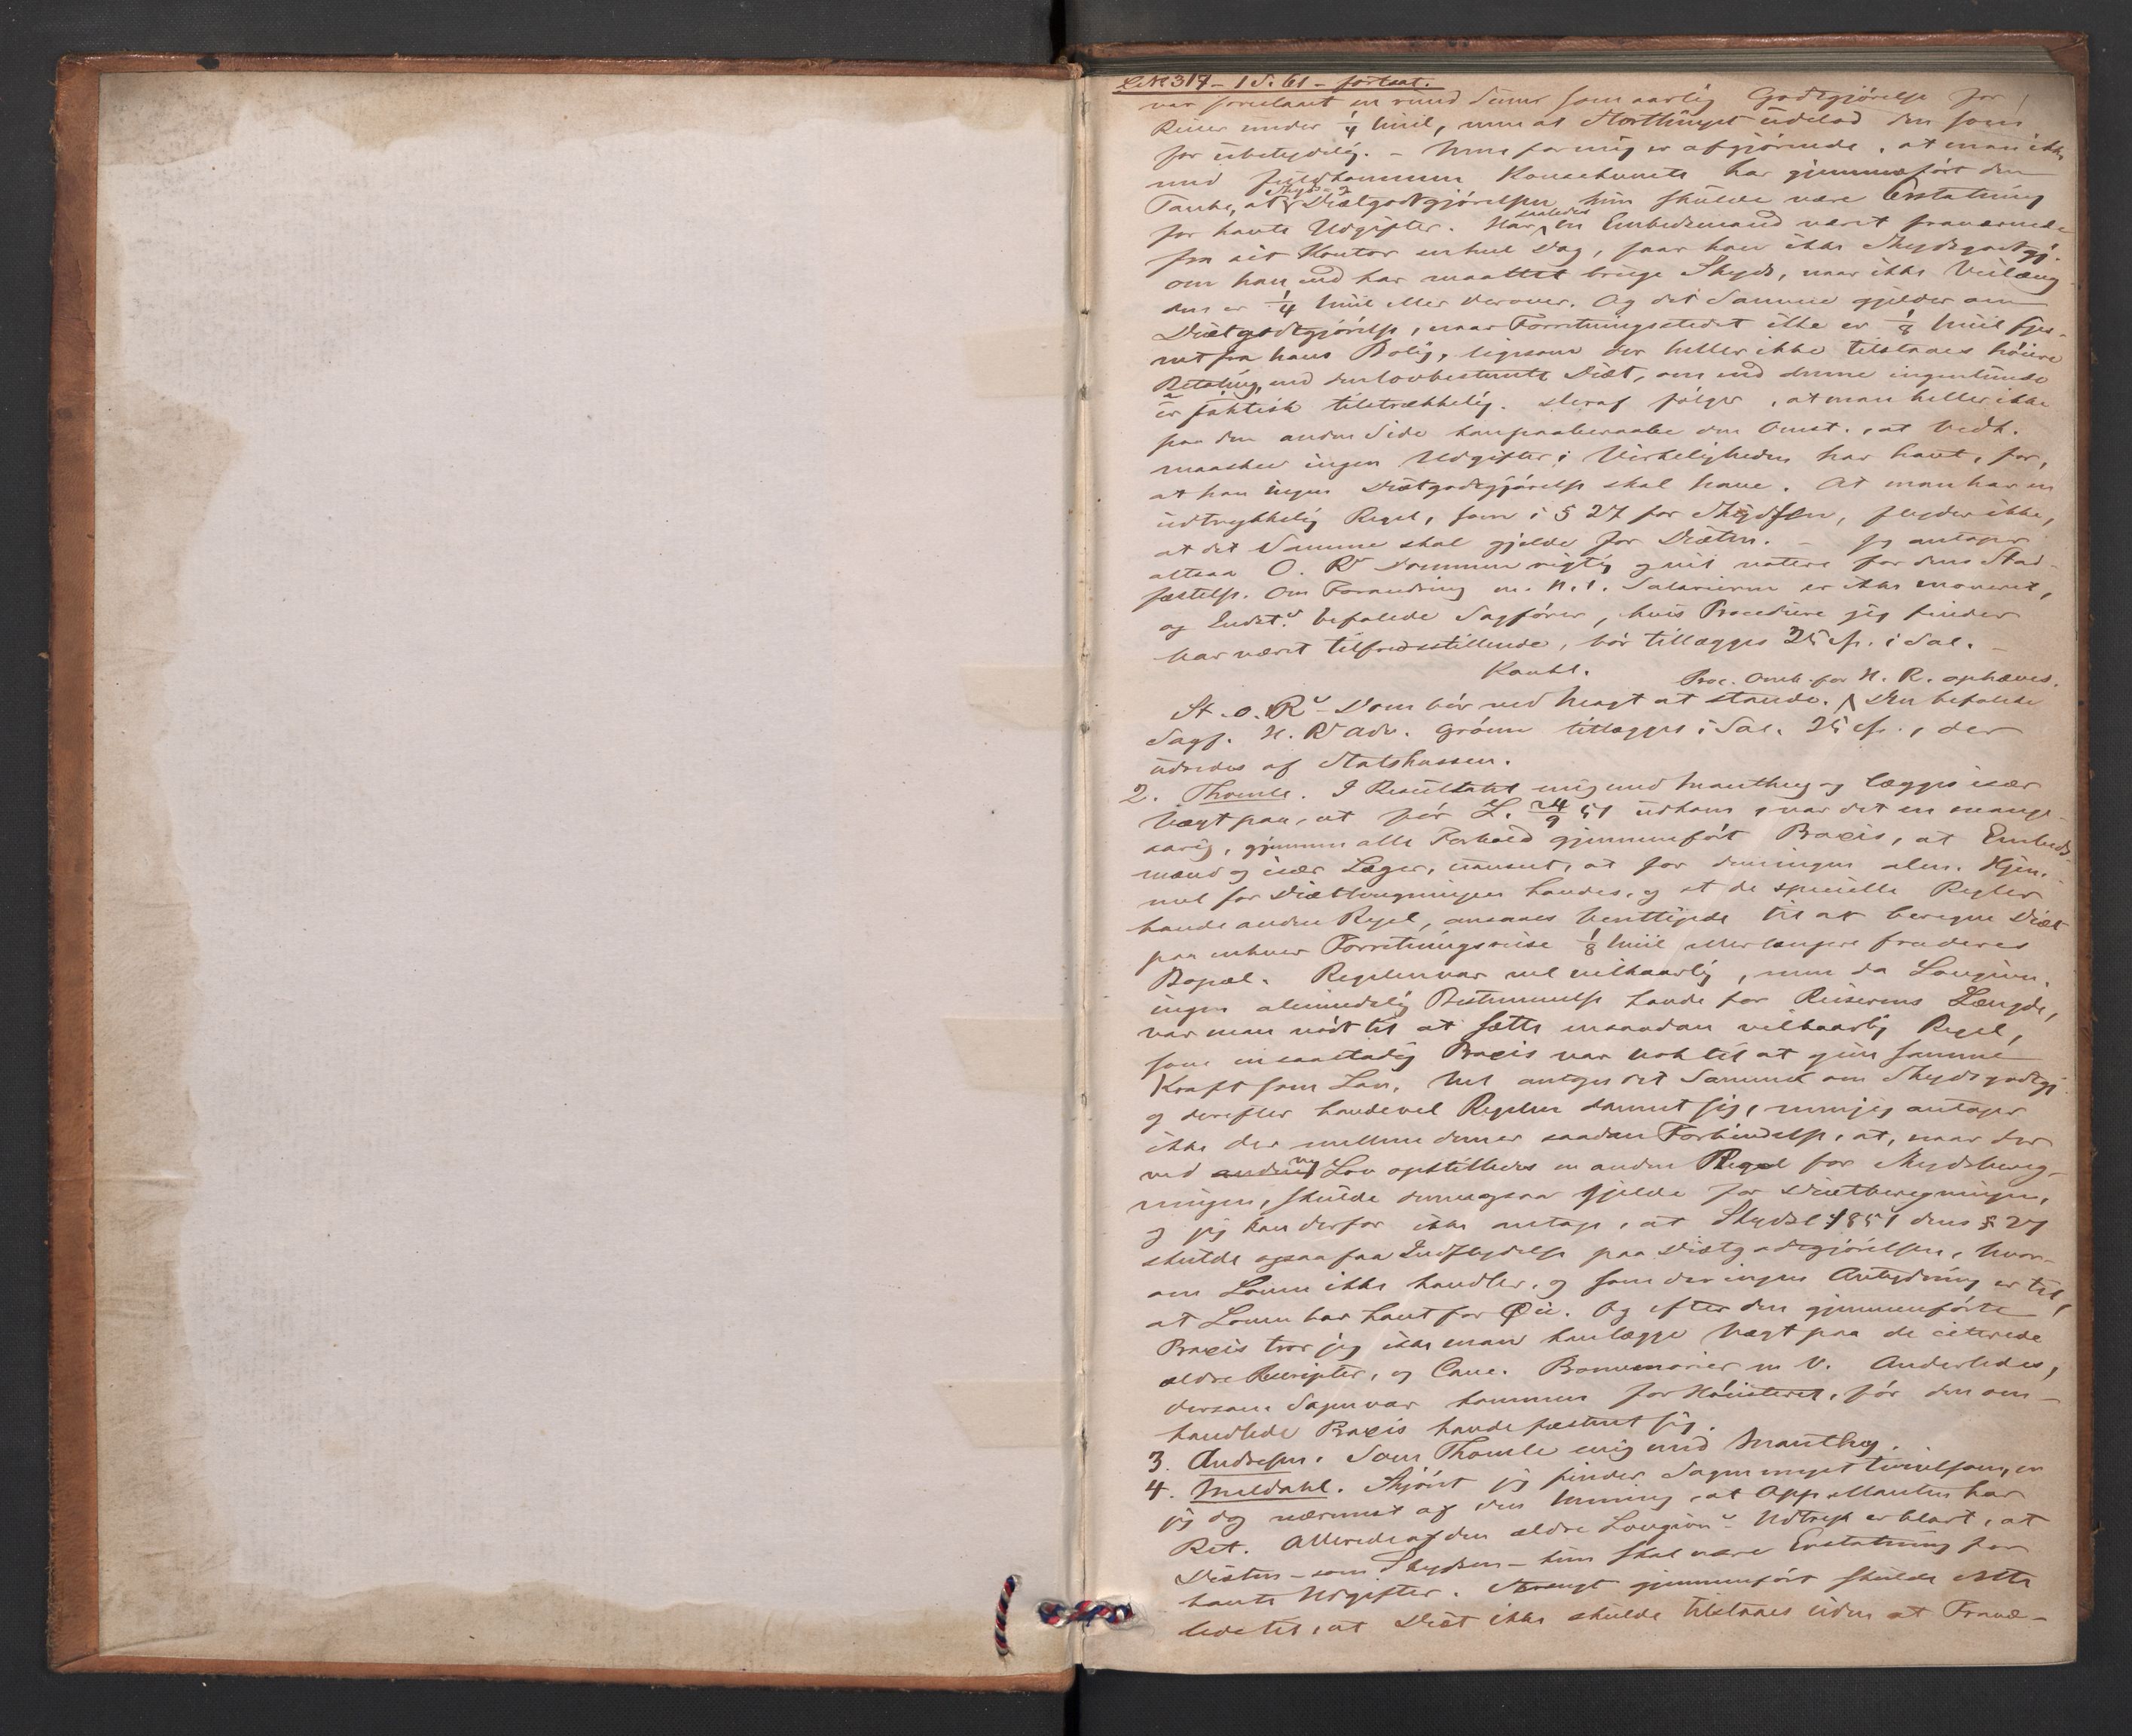 L. N. 317 - 1 S. 61 - fortsat.
var foreslaaet en rund Sum som aarlig Godtgjörelse for
Reiser under 1/4 Miil, men at Storthinget udelod den som
for ubetydelig. - Men for mig er afgjörende, at man ikke
med fuldkommen Konsekvents har gjennemført den
Tanke, at Skyds- & Diætgodtgjörelsen kun skulde være Erstatning
for havte Udgifter. Har saaledes en Embedsmand været fraværende
fra sit Kontor en heel Dag, faar han ikke Skydsgodtgj.
om han end har maattet bruge Skyds, naar ikke Veilæng
den er 1/4 Miil eller derover. Og det Samme gjelder om
Diætgodtgjörelse, naar Forretningsstedet ikke er 1/8 Miil fjer-
net fra hans Bolig, ligesom der heller ikke tilstaaes höiere
Betaling, end den lovbestemte Diæt, om end denne ingenlunde
er faktisk tilstrækkelig. Heraf fölger, at man heller ikke
paa den anden Side kan paaberaabe den Omst., at Vedk.
maaskee ingen Udgifter i Virkeligheden har havt, for,
at han ingen Diætgodtgjörelse skal have. At man har en
udtrykkelig Regel, som i § 27 for Skydsen, flyder ikke,
at det Samme skal gjelde for Diæten. - Jeg antager
altsaa O. Rs Dommen rigtig og vil votere for dens Stad-
fæstelse. Om Forandring m. H. t. Salarierne er ikke moveret,
og Indst.s befalede Sagförer, hvis Procedure jeg finder
har været tilfredsstillende, bör tillægges 25 Sp. i Sal. -
Konkl.
Proc. Omk. for H. R. ophæves.
St. O. Rs Dom bör ved Magt at stande. Den befalede
Sagf. H. R. Adv. Grönn tillægges i Sal. 25 Sp., der
udredes af Statskassen.
2. Thomle. I Resultatet enig med Manthey og lægges især
Vægt paa, at för L. 24/9 51 udkom, var det en mange-
aarig, gjennem alle Forhold gjennemfört Praxis, at Embeds-
mænd og især Læger, uanseet, at for den ingen alm. Hjem-
mel for Diætberegningen havdes, og at de specielle Regler
havde anden Regel, ansaaes berettigede til at beregne Diæt
paa enhver Forretningsreise 1/8 Miil eller længere fra deres
Bopæl. Regelen var vel vilkaarlig, men da Lovgivn.
ingen almindelig Bestemmelse havde for Reisernes Længde,
var man nödt til at sætte en saadan vilkaarlig Regel,
som en saa stadig Praxis var nok til at give samme
Kraft som Lov. Vel antages det Samme om Skydsgodtgj.
og derefter havde vel Regelen dannet sig, men jeg antager
ikke der mellem dem er saadan Forbindelse, at, naar der
ved ny Lov opstilledes en anden Regel for Skydsbereg-
ningen, skulde denne ogsaa gjelde for Diætberegningen,
og jeg kan derfor ikke antage, at Skydsl. 1851 dens § 27
skulde ogsaa faa Indflydelse paa Diætgodtgjörelsen, hvor-
om Loven ikke handler, og som der ingen Antydning er til,
at Loven har havt for Öie. Og efter den gjennemförte
Praxis tror jeg ikke man kan lægge Vægt paa de citerede
ældre Rescripter, og Canc. Promemorier m V. Anderledes,
dersom Sagen var kommen for Höiesteret, för den om-
handlede Praxis havde fæstnet sig.
3. Andresen. Som Thomle enig med Manthey.
4. Meldahl. Skjönt jeg finder Sagen meget tvivlsom, er
jeg dog nærmest af den Mening, at Appellanten har
Ret. Allerede af den ældre Lovgivn.s Udtryk er klart, at
Diæten - som Skydsen - kun skal være Erstatning for
havte Udgifter. Strengt gjennemfört skulde dette
lede til, at Diæt ikke skulde tilstaaes uden at Fravæ-